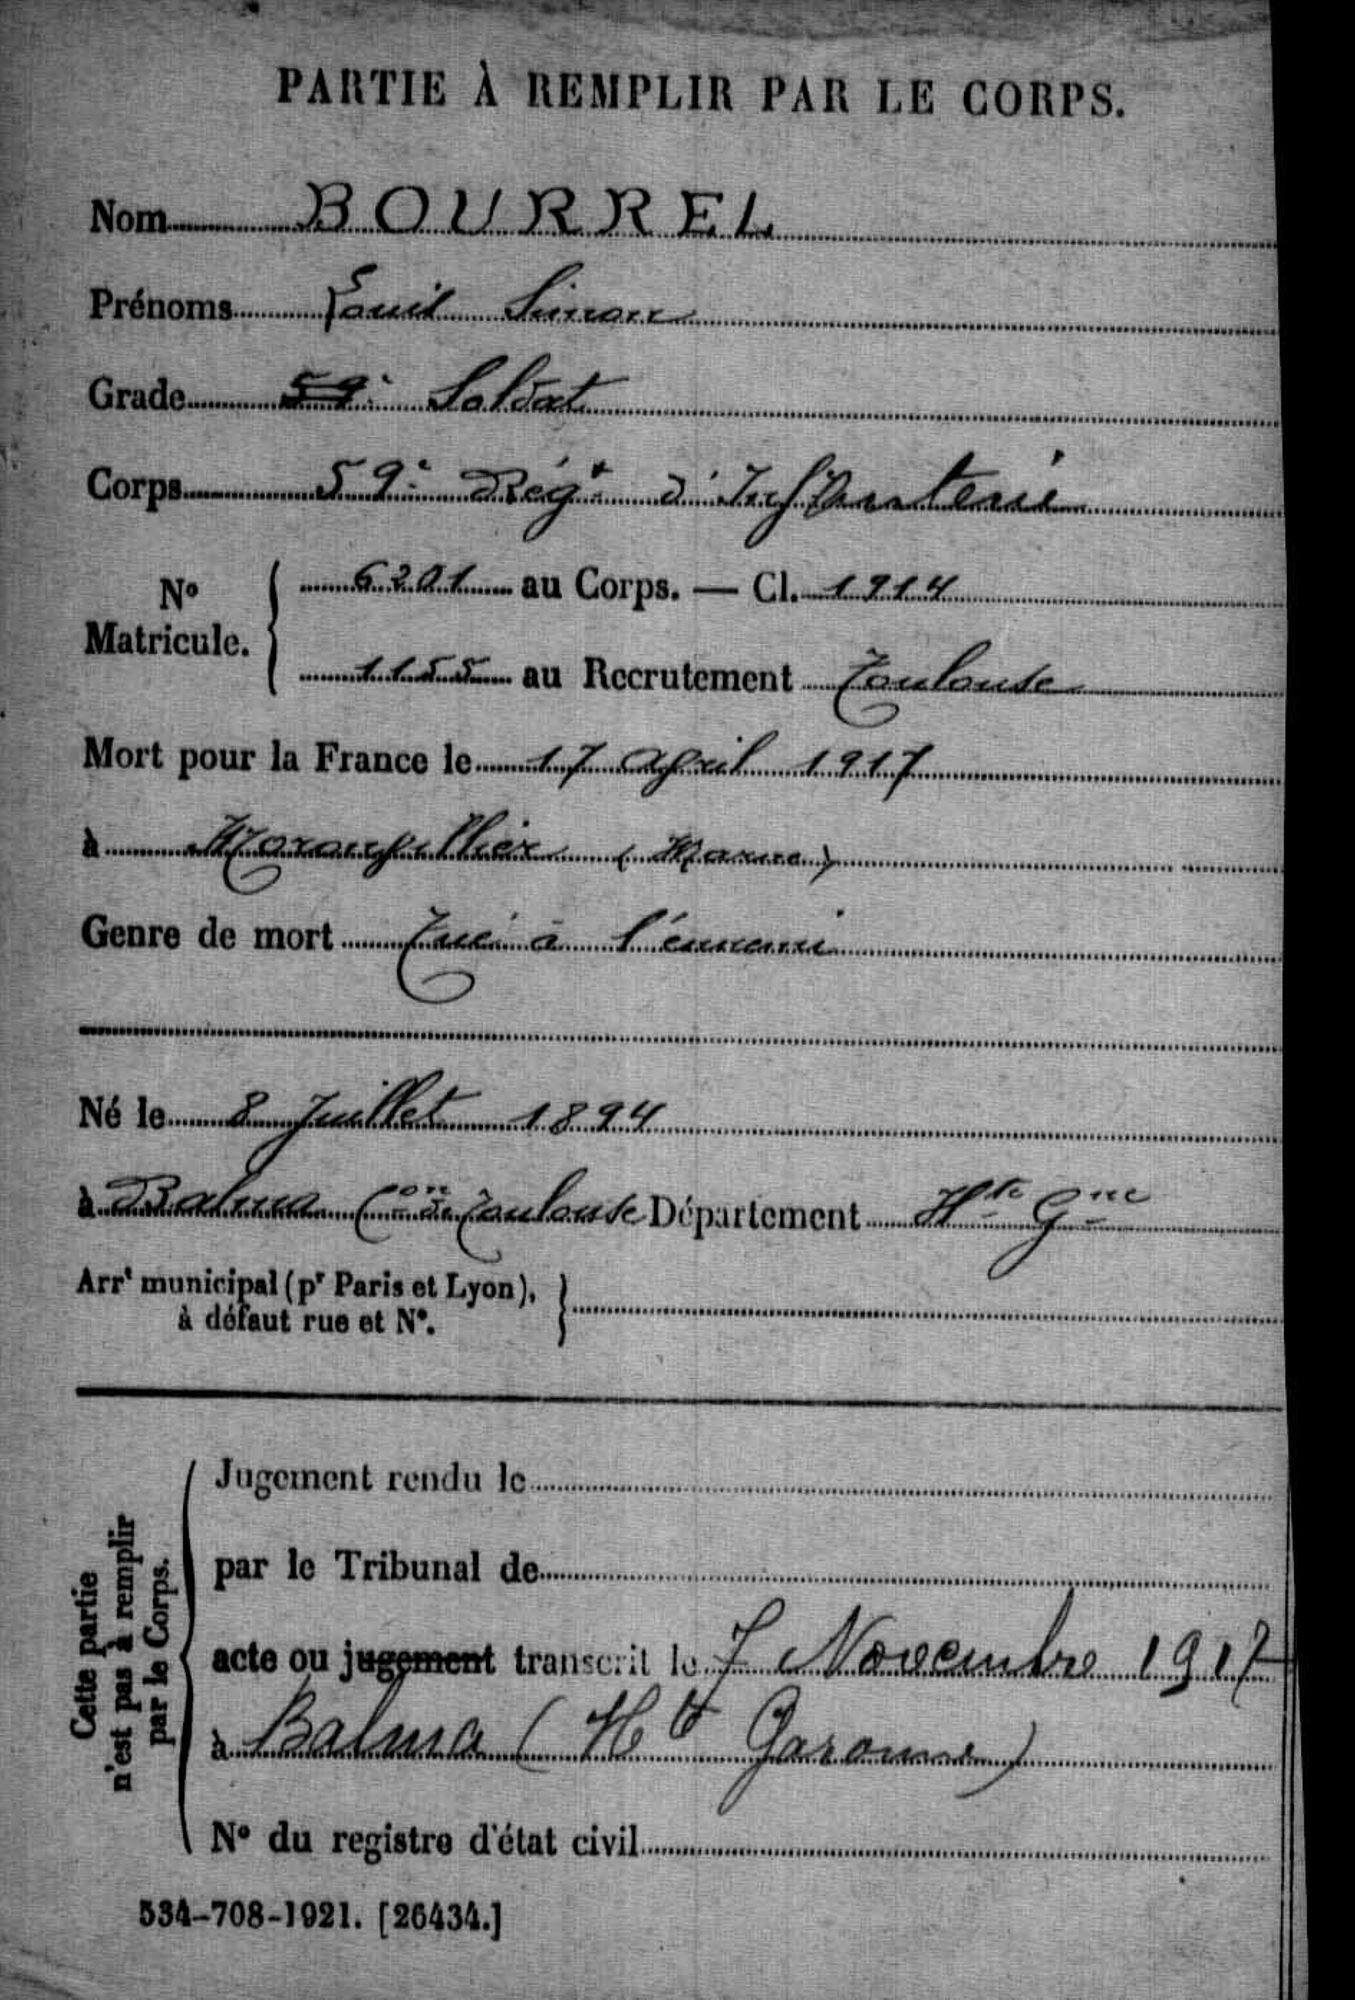 PARTIE À REMPLIR PAR LE CORPS.
Nom BOURREL
Prénoms Louis Simon
Grade 59e Soldat
Corps 59e Régt d'Infanterie
No Matricule. 6201 au Corps. — Cl. 1914
1155 au Recrutement Toulouse
Mort pour la France le 17 April 1917
à (Marne)
Genre de mort Tué à l'ennemi
Né le 8 Juillet 1894
à Balma Con de Toulouse Département Hte Gne
Arrt municipal (pr Paris et Lyon),
à défaut rue et N°.
Cette partie
n'est pas à remplir
par le Corps.
Jugement rendu le
par le Tribunal de
acte ou jugement transcrit le 7 Novembre 1917
à Balma (Hte Garonne)
N° du registre d'état civil
534-708-1921. [26434.]